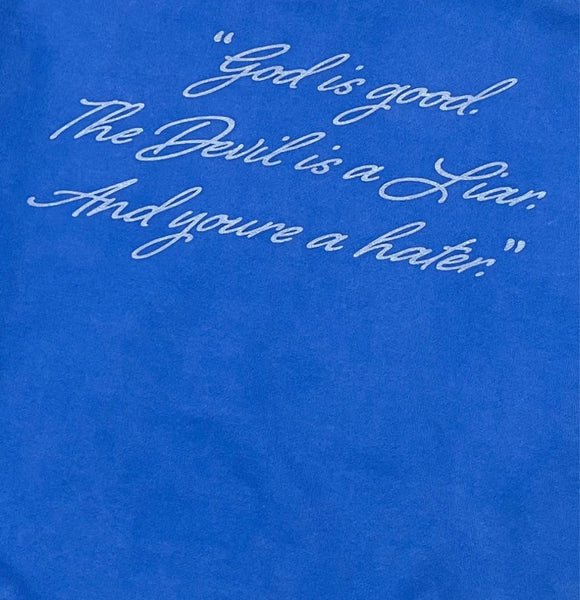 "God is good.
The Devil is a Liar.
And youre a hater."